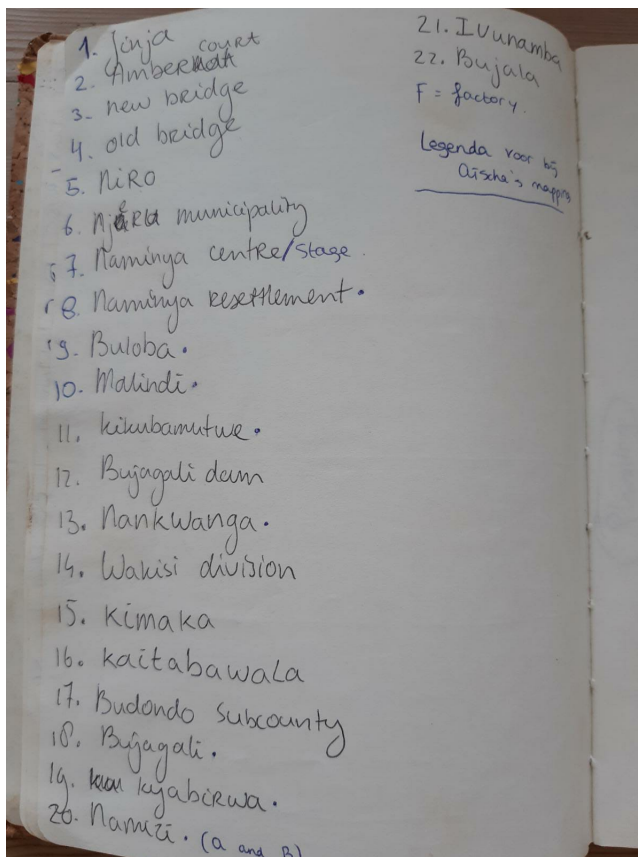 1. Jinja
2. Amber court
3. new bridge
4. old bridge
5. NiRO
6. Njeru municipality
7. Naminya centre/stage.
8. Naminya resettlement.
9. Buloba.
10. Malindi.
11. kikubamutwe.
12. Bujagali dam
13. Nankwanga.
14. Wakisi division
15. kimaka
16. kaitabawala
17. Budondo subcounty
18. Bujagali.
19. kyabirwa.
20. Namizi. (a and B)
21. Ivunamba
22. Bujala
F = factory.
Legenda voor bij
Aischa's mapping